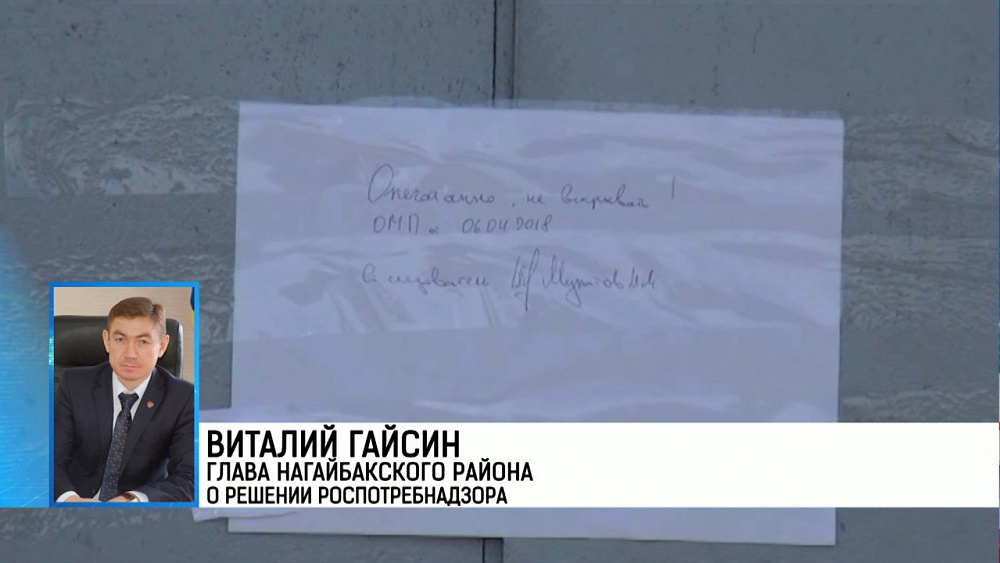 Опечатано, не вскрывать!
ОМП 06.04.2018
Следователь
ВИТАЛИЙ ГАЙСИН
ГЛАВА НАГАЙБАКСКОГО РАЙОНА
О РЕШЕНИИ РОСПОТРЕБНАДЗОРА